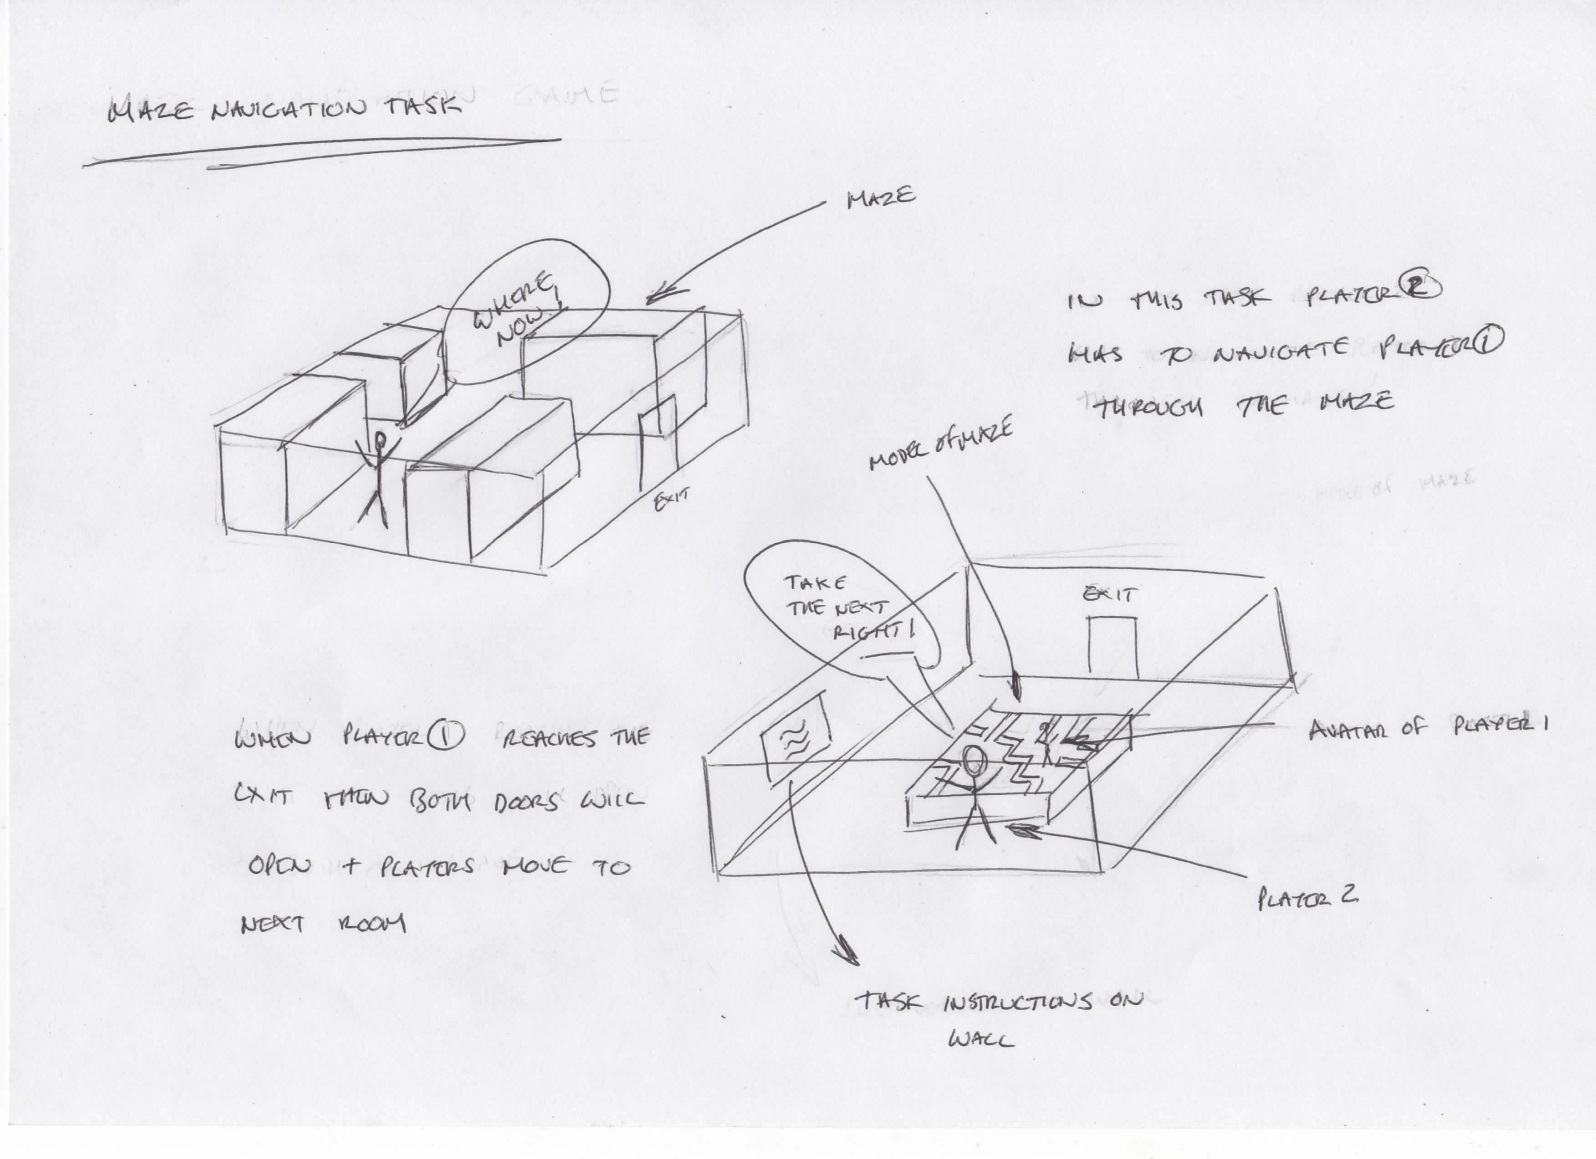 MAZE NAVIGATION TASK
MAZE
WHERE
NOW!
IN THIS TASK PLAYER 2
HAS TO NAVIGATE PLAYER 1
THROUGH THE MAZE
EXIT
MODEL OF MAZE
TAKE
THE NEXT
RIGHT!
EXIT
AVATAR OF PLAYER 1
WHEN PLAYER 1 REACHES THE
EXIT THEN BOTH DOORS WILL
OPEN + PLAYERS MOVE TO
NEXT ROOM
PLAYER 2
TASK INSTRUCTIONS ON
WALL